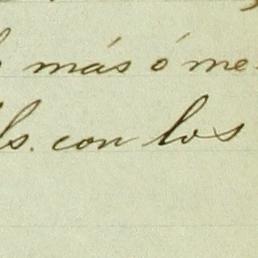 más ó me
ls. con los